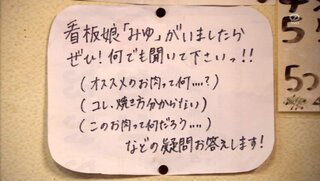 看板娘「みゆ」がいましたら
ぜひ!何でも聞いて下さいっ!!
(オススメのお肉って何....?)
(コレ、焼き方分からない)
(このお肉って何だろう....)
などの疑問お答えします!
5つ